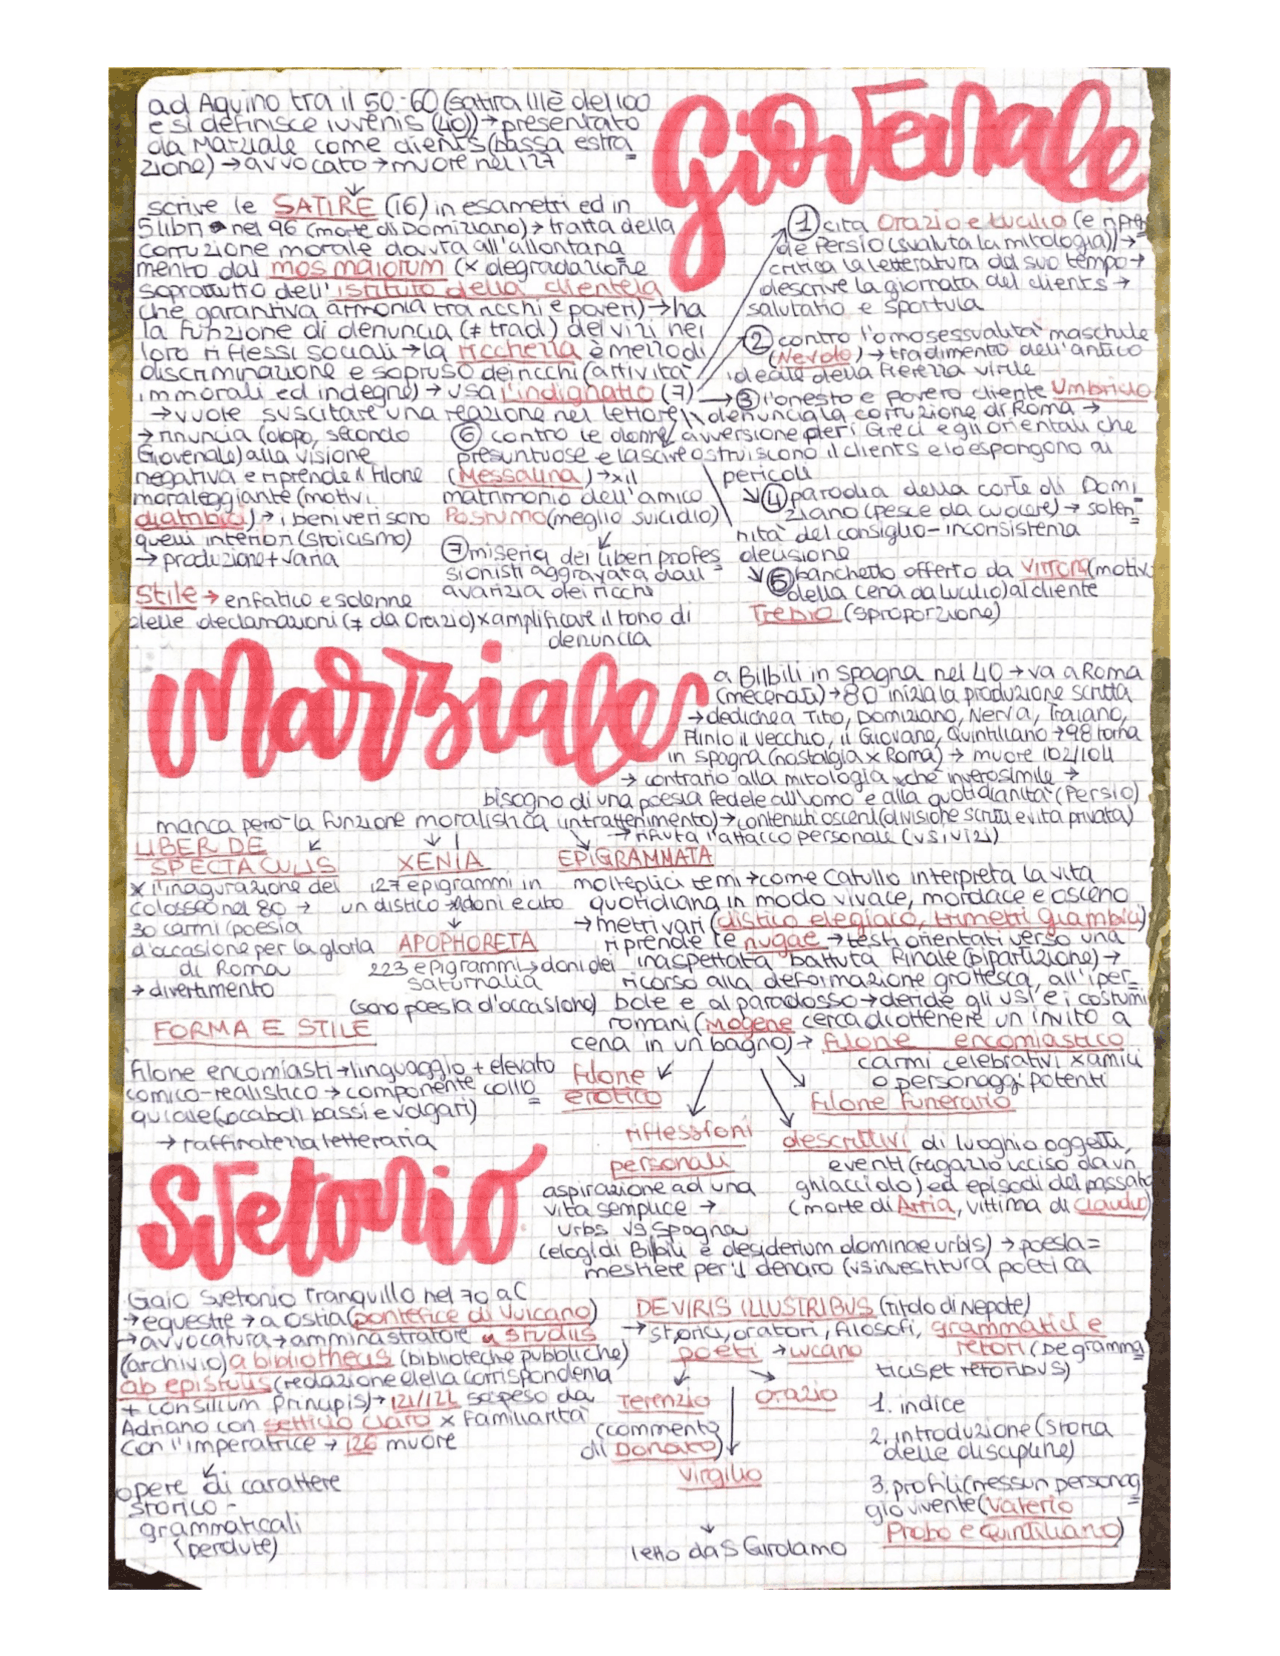 Giovenale
ad Aquino tra il 50-60 (satira III è del 100
e si definisce iuvenis (40)) → presentato
da Marziale come cliens (bassa estra
zione) → avvocato → muore nel 127
scrive le SATIRE (16) in esametri ed in
5 libri nel 96 (morte di Domiziano) → tratta della
corruzione morale dovuta all'allontana
mento dal mos maiorum (x degradazione
soprattutto dell'istituto della clientela
che garantiva armonia tra ricchi e poveri) → ha
la funzione di denuncia (≠ trad.) dei vizi nei
loro riflessi sociali → la ricchezza è mezzo di
discriminazione e sopruso dei ricchi (attività
immorali ed indegne) → usa l'indignatio (7)
→ vuole suscitare una reazione nel lettore
→ rinuncia (dopo, secondo
Giovenale) alla visione
negativa e riprende il filone
moraleggiante (motivi
diatribici) → i beni veri sono
quelli interiori (stoicismo)
→ produzione + varia
Stile → enfatico e solenne
delle declamazioni (≠ da Orazio) x amplificare il tono di
denuncia
① cita Orazio e Lucilio (e ripren
de Persio (svaluta la mitologia)) →
critica la letteratura del suo tempo →
descrive la giornata del cliens →
salutatio e sportula
② contro l'omosessualità maschile
(Nevolo) → tradimento dell'antico
ideale della fierezza virile
③ l'onesto e povero cliente Umbricio
denuncia la corruzione di Roma →
avversione per i Greci e gli orientali che
ostruiscono il cliens e lo espongono ai
pericoli
④ parodia della corte di Domi
ziano (pesce da cuocere) → solen
nità del consiglio - inconsistenza
decisione
⑤ banchetto offerto da Virrone (motivo
della cena da Lucilio) al cliente
Trebio (sproporzione)
⑥ contro le donne
presuntuose e lascive
(Messalina) → x il
matrimonio dell'amico
Postumo (meglio suicidio)
⑦ miseria dei liberi profes
sionisti aggravata dall'
avarizia dei ricchi
Marziale
a Bilbili in Spagna nel 40 → va a Roma
(mecenati) → 80 inizia la produzione scritta
→ dediche a Tito, Domiziano, Nerva, Traiano,
Plinio il Vecchio, il Giovane, Quintiliano → 98 torna
in Spagna (nostalgia x Roma) → muore 102/104
→ contrario alla mitologia xchè inverosimile →
bisogno di una poesia fedele all'uomo e alla quotidianità (Persio)
manca però la funzione moralistica (intrattenimento) → contenuti osceni (divisione scritti e vita privata)
→ rifiuta l'attacco personale (vs i vizi)
LIBER DE
SPECTACULIS
x l'inaugurazione del
Colosseo nel 80 →
30 carmi (poesia
d'occasione per la gloria
di Roma
→ divertimento
XENIA
127 epigrammi in
un distico → doni e cibo
APOPHORETA
223 epigrammi → doni dei
Saturnalia
(sono poesia d'occasione)
EPIGRAMMATA
molteplici temi → come Catullo interpreta la vita
quotidiana in modo vivace, mordace e osceno
→ metri vari (distico elegiaco, trimetri giambici)
riprende le nugae → testi orientati verso una
inaspettata battuta finale (bipartizione) →
ricorso alla deformazione grottesca, all'iper
bole e al paradosso → deride gli usi e i costumi
romani (Mogene cerca di ottenere un invito a
cena in un bagno) → filone encomiastico
carmi celebrativi x amici
o personaggi potenti
filone funerario
filone
erotico
riflessioni
personali
aspirazione ad una
vita semplice →
urbs vs Spagna
(elogi di Bilbili e desiderium dominae urbis) → poesia =
mestiere per il denaro (vs investitura poetica
descrittivi di luoghi o oggetti,
eventi (ragazzo ucciso da un
ghiacciolo) ed episodi del passato
(morte di Arria, vittima di Claudio)
FORMA E STILE
filone encomiasti → linguaggio + elevato
comico-realistico → componente collo
quiale (vocaboli bassi e volgari)
→ raffinatezza letteraria
Svetonio
Gaio Svetonio Tranquillo nel 70 aC
→ equestre → a Ostia (pontefice di Vulcano)
→ avvocatura → amministratore a studiis
(archivio) a bibliothecis (biblioteche pubbliche)
ab epistulis (redazione della corrispondenza
+ consilium principis) → 121/122 sospeso da
Adriano con Setticio Claro x familiarità
con l'imperatrice → 126 muore
opere di carattere
storico-
grammaticali
(perdute)
DE VIRIS ILLUSTRIBUS (titolo di Nepote)
→ storici, oratori, filosofi, grammatici e
retori (De gramma
ticis et retoribus)
poeti → Lucano
Terenzio
(commento
di Donato)
Orazio
Virgilio
letto da S Girolamo
1. indice
2. introduzione (storia
delle discipline)
3. profili (nessun personag
gio vivente (Valerio
Probo e Quintiliano)